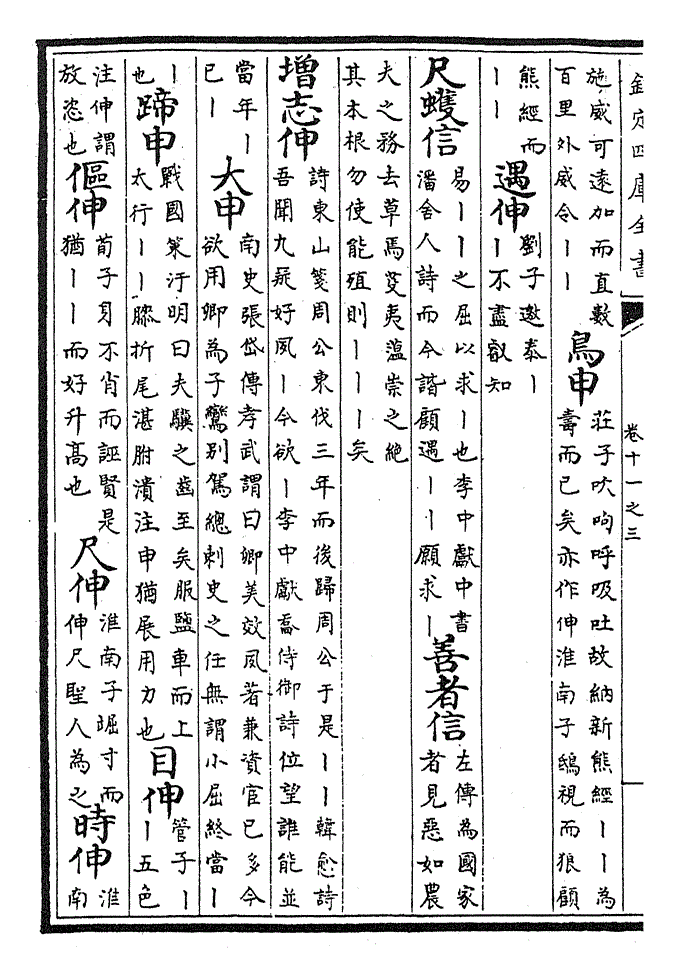 欽定四庫全書
卷十一之三
施威可遠加而直數
百里外威令丨丨
鳥申
莊子吹呴呼吸吐故納新熊經丨丨為
壽而已矣亦作伸淮南子鴟視而狼顧
熊經而
丨丨
遇伸
劉子遨泰丨
丨不盡叡知
尺蠖信
易丨丨之屈以求丨也李中獻中書
潘舍人詩而今諧顧遇丨丨願求丨
善者信
左傳為國家
者見惡如農
夫之務去草焉芟夷薀崇之絶
其本根勿使能殖則丨丨丨矣
增志伸
詩東山箋周公東伐三年而後歸周公于是丨丨韓愈詩
吾聞九疑好夙丨今欲丨李中獻喬侍御詩位望誰能並
當年丨
已丨
大申
南史張岱傳孝武謂曰卿美效夙著兼資官已多今
欲用卿為子鸞别駕總刺史之任無謂小屈終當丨
丨
也
蹄申
戰國策汙明曰夫驥之齒至矣服鹽車而上
太行丨丨膝折尾湛胕潰注申猶展用力也
目伸
管子丨
丨五色
注伸謂
放恣也
傴伸
荀子身不肖而誣賢是
猶丨丨而好升高也
尺伸
淮南子崛寸而
伸尺聖人為之
時伸
淮
南